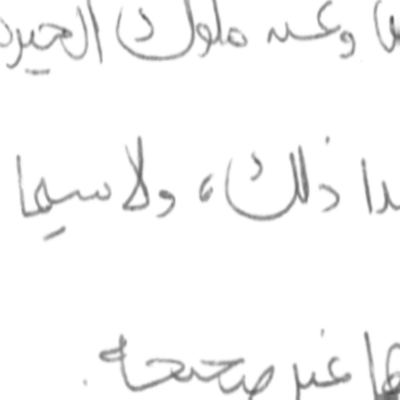 وعند ملوك الحيرة
ذلك، ولا سيما
غير صحيحة.